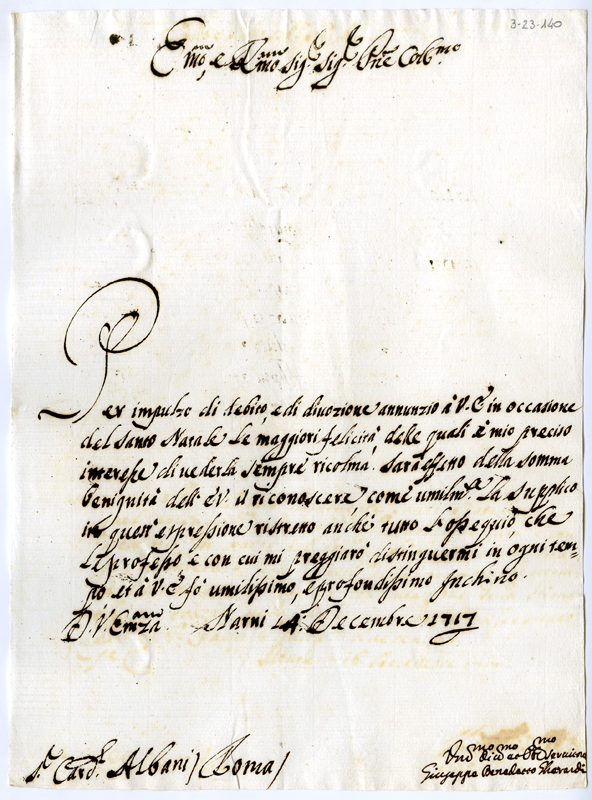 3-23-140
Em̃o, e Rm̃o Sig.r Sig.r Pr̃ne Col.mo
Per impulso di debito, e di diuozione annunzio à V.E. in occasione
del Santo Natale le maggiori felicità, delle quali è mio preciso
interesse di uederla sempre ricolma. Sarà effetto della somma
benignità dell'E.V. il riconoscere, come umilm.te La supplico
in quest'espressione ristretto anche tutto l'ossequio, che
Le professo e con cui mi preggiarò distinguermi in ogni tem=
po et à V.E. fò umilissimo, e profondissimo Inchino.
D. V. Em̃za Narni 14. Decembre 1717
S.r Card.l Albani / Roma /
Um̃o Seruitore
Giuseppe Benedetto